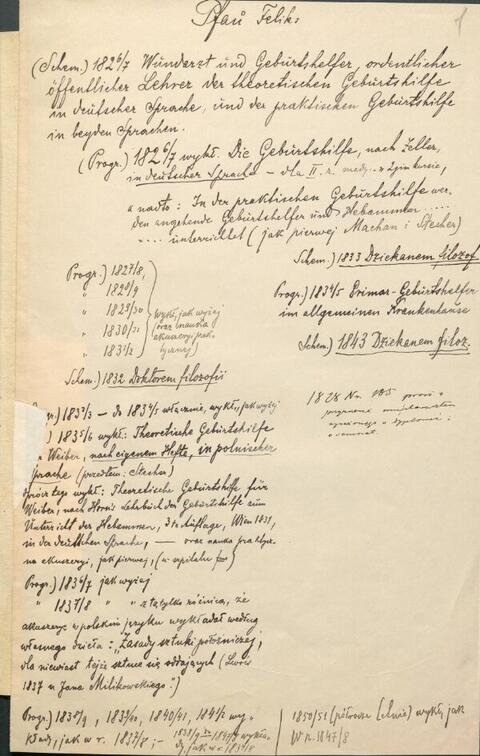 Pfaŭ Feliks
1
(Schem.) 1826/7 Wundarzt und Geburtshelfer, ordentlicher
öffentlicher Lehrer der theoretischen Geburtshilfe
in deutscher Sprache, und der praktischen Geburtshilfe
in beyden Sprachen.
(Progr.) 1826/7 wykł. Die Geburtshilfe, nach Zeller,
in deutscher Sprache – dla II. r. medyc.
a nadto: In der praktischen Geburtshilfe wer-
den angehende Geburtshelfer und Hebammen .....
..... unterrichtet (jak pierwej Machan i Stecher)
Schem.) 1833 Dziekanem filozof
Progr.) 1827/8,
" 1828/9
" 1829/30
" 1830/31
" 1831/2
wykł. jak wyżej
oraz nauka
akuszeryi prak-
tycznej)
Progr.) 1834/5 Primar-Geburtshelfer
im allgemeinen Krankenhause
Schem.) 1843 Dziekanem filoz.
Schem.) 1832 Doktorem filozofii
1828 Nr. 185 prosi o
Progr.) 1832/3 – do 1834/5 włącznie, wykł. jak wyżej
) 1835/6 wykł: Theoretische Geburtshilfe
Weiber, nach eigenem Hefte, in polnischer
Sprache (przedtem: Stecher)
oprócz tego wykł: Theoretische Geburtshilfe für
Weiber, nach Horn's Lehrbuch der Geburtshilfe zum
Unterricht der Hebammen, 3te Auflage, Wien 1831,
in der deutschen Sprache, — oraz nauka prakty-
na akuszeryi, jak pierwej, (w szpitalu
Progr.) 1836/7 jak wyżej
" 1837/8 " " z tą tylko różnicą, że
akuszeryę w polskim języku wykładał według
własnego dzieła: "Zasady sztuki położniczej,
dla niewiast tejże sztuce się oddających (Lwów
1837 u Jana Milikowskiego:)
Progr.) 1838/9, 1839/40, 1840/41, 1841/2 wy-
kłady, jak w r. 1837/8; –
jak w r. 1837/8
1850/51 (półrocze wykły jak
w r. 1847/8